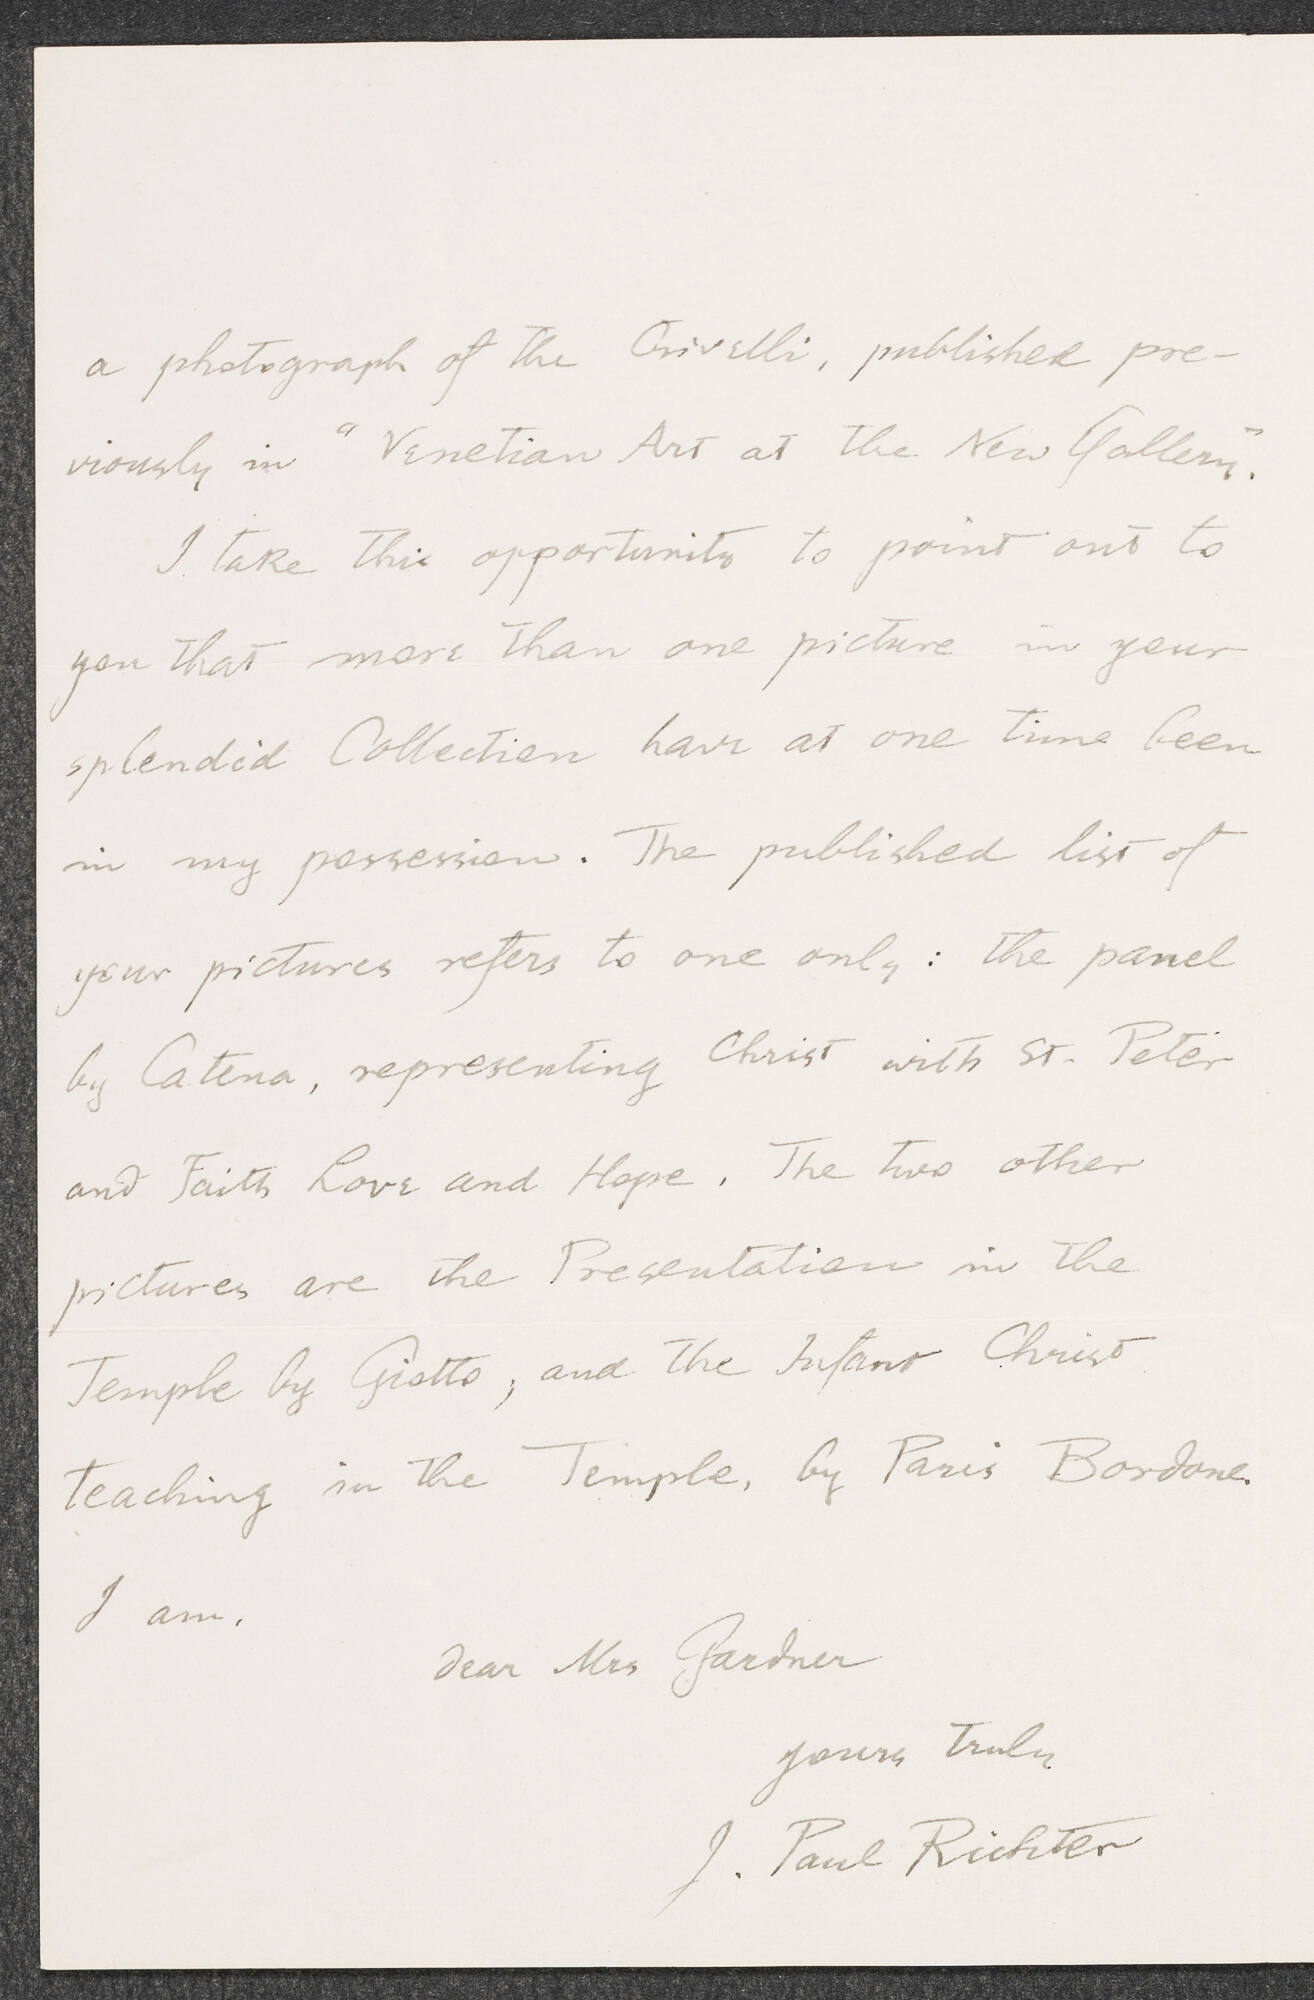 a photograph of the Crivelli, published pre-
viously in "Venetian Art at the New Gallery".
I take this opportunity to point out to
you that more than one picture in your
splendid Collection have at one time been
in my possession. The published list of
your pictures refers to one only: the panel
by Catena, representing Christ with St. Peter
and Faith Love and Hope. The two other
pictures are the Presentation in the
Temple by Giotto, and the Infant Christ
teaching in the Temple, by Paris Bordone.
I am.
dear Mrs Gardner
yours truly
J. Paul Richter